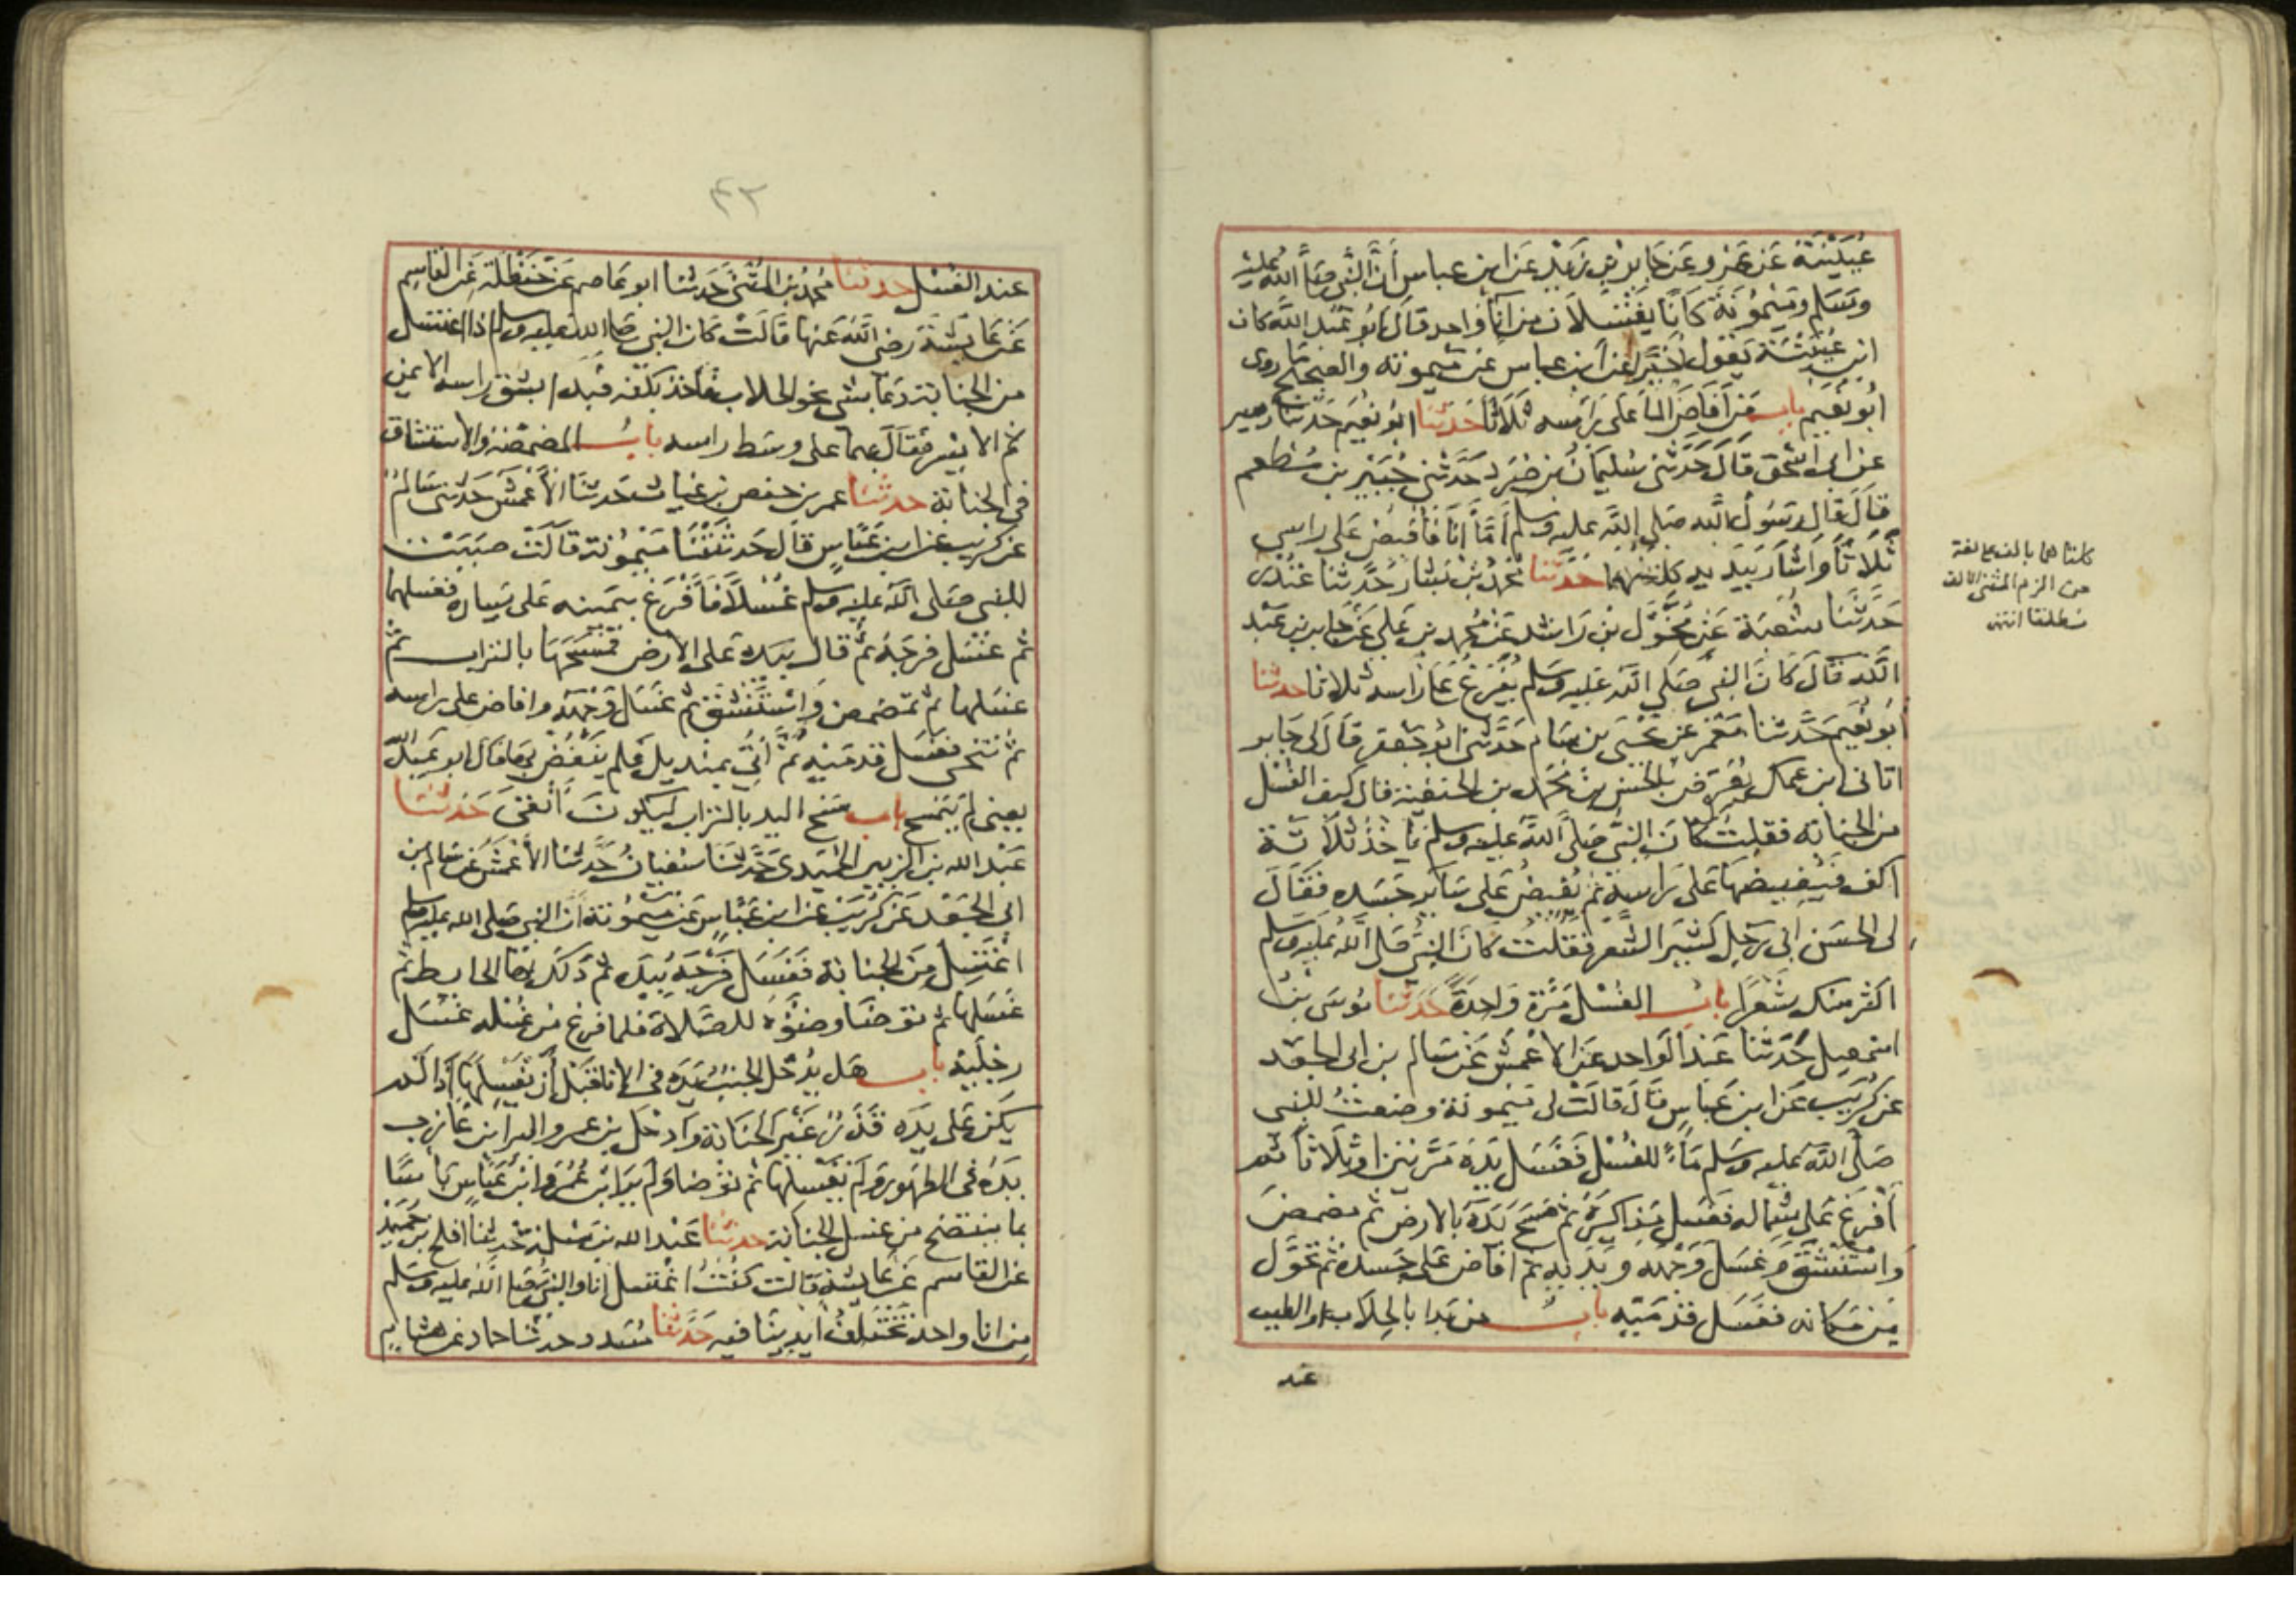 عيينة عن عمرو عن جابر بن زيد عن ابن عباس أن النبي صلى الله عليه
وسلم وميمونة كانا يغتسلان من اناء واحد قال ابو عبد الله كان
ابن عيينة يقول اخيرا عن ابن عباس عن ميمونة والصحيح ما روى
ابو نعيم باب من أفاض الماء على رأسه ثلاثا حدثنا ابو نعيم حدثنا زهير
عن ابي اسحق قال حدثني سليمان بن صرد حدثني جبير بن مطعم
قال قال رسول الله صلى الله عليه وسلم أما أنا فأفيض على راسي
ثلاثا وأشار بيديه كلتيهما حدثنا محمد بن بشار حدثنا غندر
حدثنا شعبة عن مخول بن راشد عن محمد بن علي عن جابر بن عبد
الله قال كان النبي صلى الله عليه وسلم يفرغ على راسه ثلاثا حدثنا
أبو نعيم حدثنا معمر عن يحيى بن سام حدثني ابو جعفر قال لى جابر
اتاني ابن عمك يعرض بالحسن بن محمد بن الحنفية قال كيف الغسل
من الجنابة فقلت كان النبي صلى الله عليه وسلم يأخذ ثلاثة
اكف فيفيضها على راسه ثم يفيض على سائر جسده فقال
لى الحسن انى رجل كثير الشعر فقلت كان النبي صلى الله عليه وسلم
اكثر منك شعرا باب الغسل مرة واحدة حدثنا موسى بن
اسمعيل حدثنا عبد الواحد عن الاعمش عن سالم بن ابى الجعد
عن كريب عن ابن عباس قال قالت لى ميمونة وضعت للنبى
صلى الله عليه وسلم ماء للغسل فغسل يده مرتين او ثلاثا ثم
أفرغ على شماله فغسل مذاكيره ثم مسح يده بالارض ثم مضمض
واستنشق وغسل وجهه ويديه ثم افاض على جسده ثم تحول
من مكانه فغسل قدميه باب من بدا بالحلاب او الطيب
عند
كلتاهما بالف على لغة
من الزم المثنى الالف
مطلقا انتهى
٤٣
عند الغسل حدثنا محمد بن المثنى حدثنا ابو عاصم عن حنظلة عن القاسم
عن عائشة رضى الله عنها قالت كان النبي صلى الله عليه وسلم اذا اغتسل
من الجنابة دعا بشى نحو الحلاب فأخذ بكفه فبدا بشق راسه الايمن
ثم الايسر فقال بهما على وسط راسه باب المضمضة والاستنشاق
فى الجنابة حدثنا عمر بن حفص بن غياث حدثنا الأعمش حدثنى سالم
عن كريب عن ابن عباس قال حدثتنا ميمونة قالت صببت
للنبى صلى الله عليه وسلم غسلا فأفرغ بيمينه على يساره فغسلهما
ثم غسل فرجه ثم قال بيده على الأرض فمسحها بالتراب ثم
غسلها ثم تمضمض واستنشق ثم غسل وجهه وافاض على راسه
ثم تنحى فغسل قدميه ثم أتي بمنديل فلم ينفض بها قال ابو عبد الله
يعنى لم يتمسح باب مسح اليد بالتراب ليكون أنقى حدثنا
عبد الله بن الزبير الحميدى حدثنا سفيان حدثنا الأعمش عن سالم بن
ابى الجعد عن كريب عن ابن عباس عن ميمونة أن النبي صلى الله عليه وسلم
اغتسل من الجنابة فغسل فرجه بيده ثم دلك بها الحايط ثم
غسلها ثم توضأ وضؤه للصلاة فلما فرغ من غسله غسل
رجليه باب هل يدخل الجنب يده فى الاناء قبل أن يغسلها إذا لم
يكن على يده قذر غير الجنابة وادخل بن عمر والبرا بن عازب
يده فى الطهور ولم يغسلها ثم توضا ولم ير ابن عمر وابن عباس بأسا
بما ينتضح من غسل الجنابة حدثنا عبد الله بن مسلمة حدثنا افلح بن حميد
عن القاسم عن عايشة قالت كنت اغتسل انا والنبي صلى الله عليه وسلم
من انا واحد تختلف أيدينا فيه حدثنا مسدد حدثنا حماد عن هشام